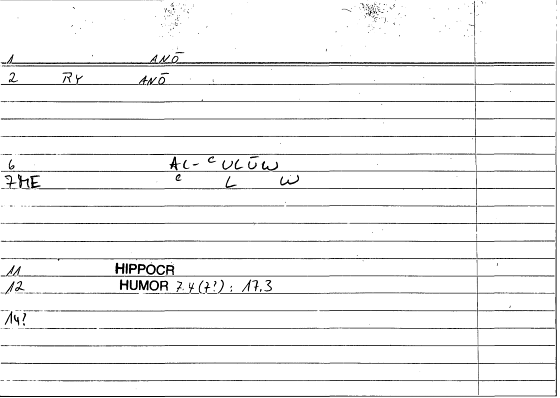 1 ANŌ
2 RY ANŌ
6 AL-ᶜULŪW
7ME ᶜ L W
11 HIPPOCR
12 HUMOR 7.4(7?): 17.3
14?